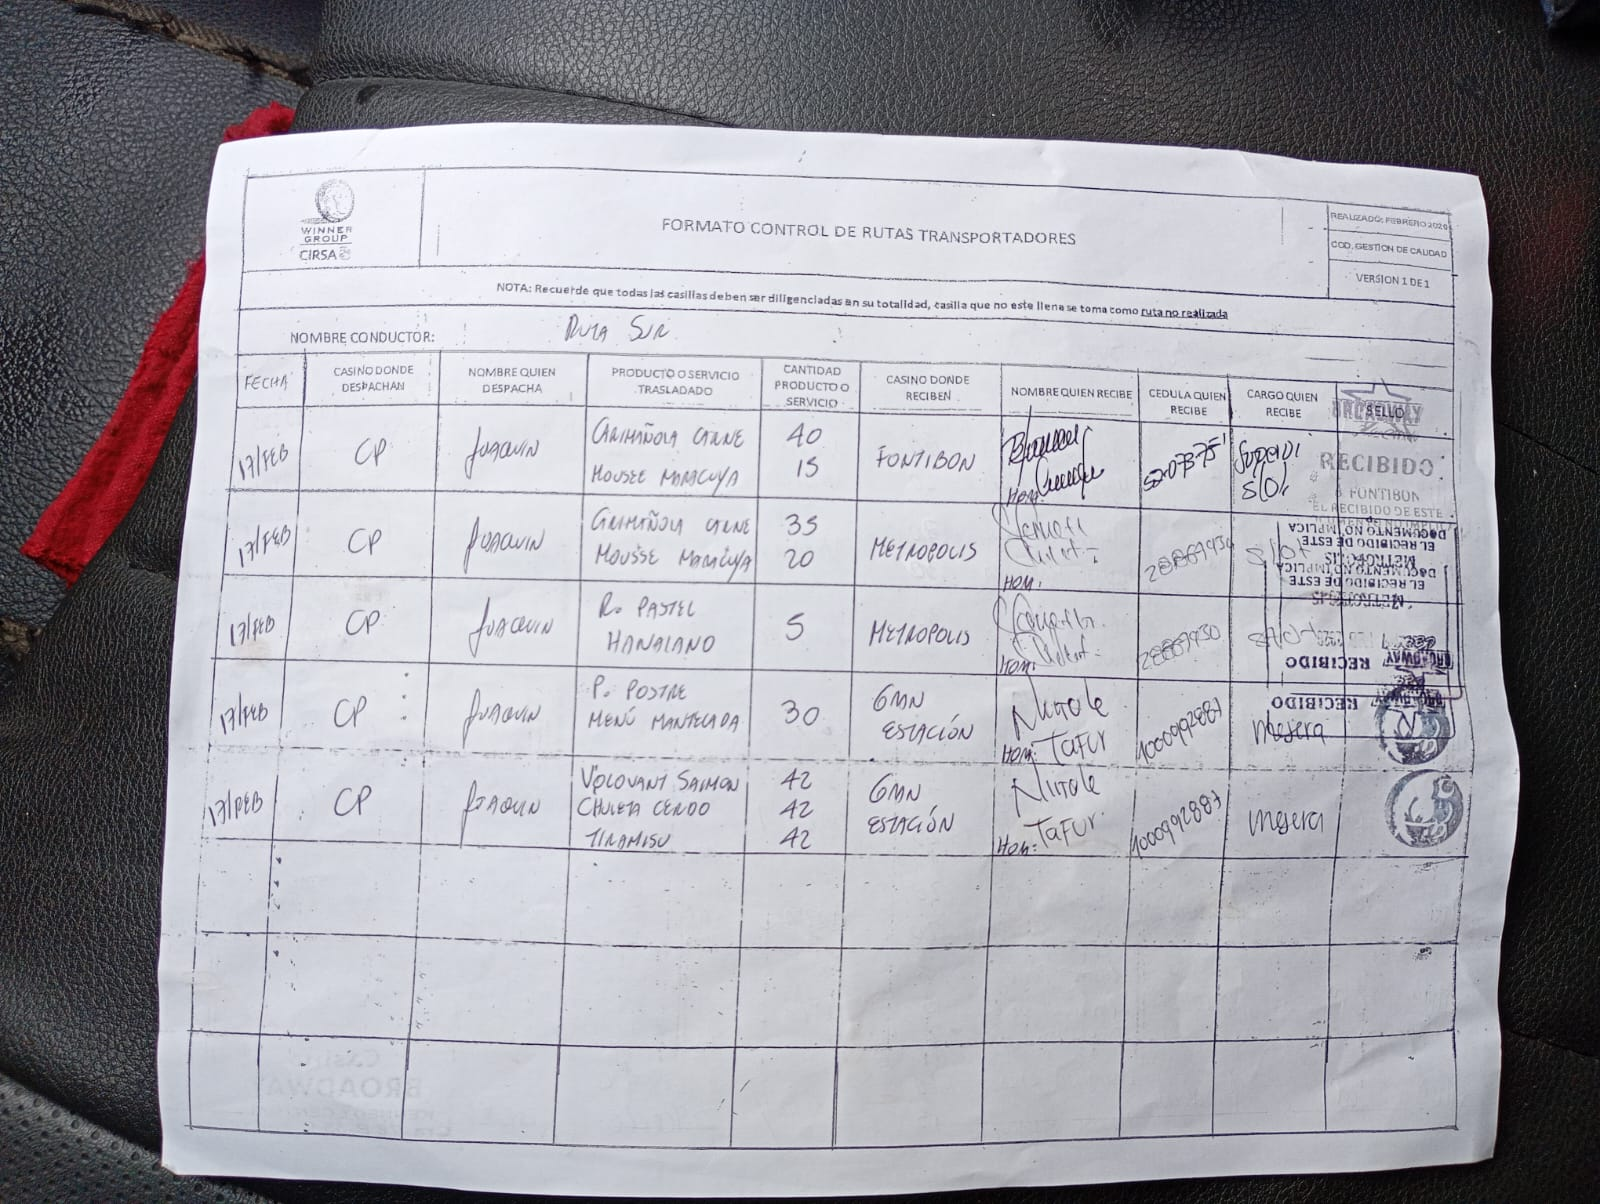 WINNER
GROUP
CIRSA
FORMATO CONTROL DE RUTAS TRANSPORTADORES
REALIZADO: FEBRERO 2020
COD. GESTION DE CALIDAD
VERSION 1 DE 1
NOTA: Recuerde que todas las casillas deben ser diligenciadas en su totalidad, casilla que no este llena se toma como ruta no realizada
NOMBRE CONDUCTOR: RUTA SUR
FECHA
CASINO DONDE DESPACHAN
NOMBRE QUIEN DESPACHA
PRODUCTO O SERVICIO TRASLADADO
CANTIDAD PRODUCTO O SERVICIO
CASINO DONDE RECIBEN
NOMBRE QUIEN RECIBE
CEDULA QUIEN RECIBE
CARGO QUIEN RECIBE
SELLO
BROADWAY
17/FEB CP JOAQUIN CARIMAÑOLA CARNE 40 FONTIBON
MOUSSE MARACUYA 15
HOM:
Slot
RECIBIDO
FONTIBON
EL RECIBIDO DE ESTE
17/FEB CP JOAQUIN CARIMAÑOLA CARNE 35 METROPOLIS
MOUSSE MARACUYA 20
HOM: Slot
EL RECIBIDO DE ESTE
DOCUMENTO NO IMPLICA
METROPOLIS
17/FEB CP JOAQUIN R. PASTEL 5 METROPOLIS
HAWAIANO
HOM:
BROADWAY RECIBIDO
RECIBIDO
17/FEB CP JOAQUIN P. POSTRE 30 GMN
MENÚ MANTECADA ESTACIÓN
Nicole
HOM: TaFUr 1000992887 mesera
17/FEB CP JOAQUIN VOLOVANT SALMON 42 GMN
CHULETA CERDO 42 ESTACIÓN
TIRAMISU 42
Nicole
HOM: TaFUr 1000992887 mesera